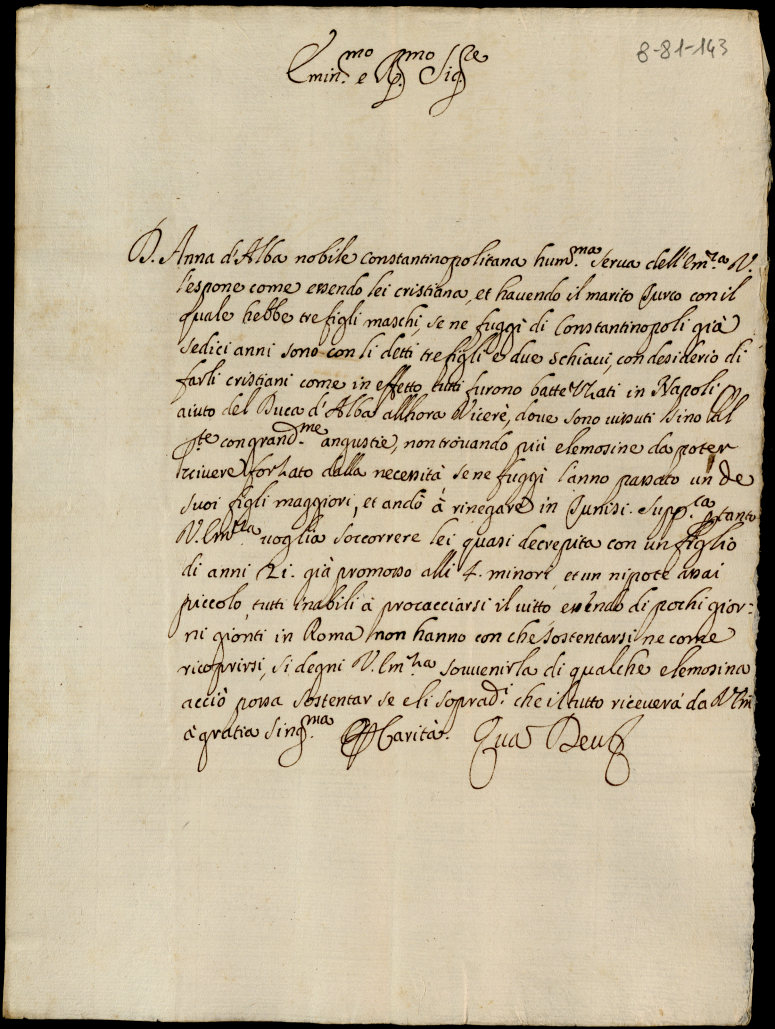 8-81-143
Emin.mo e R.mo Sig.re
D. Anna d'Alba nobile Constantinopolitana hum.ma serua dell'Em.za V.
l'espone come essendo lei cristiana, et hauendo il marito Turco con il
quale hebbe tre figli maschi, se ne fuggì di Constantinopoli già
sedici anni sono con li detti tre figli e due schiaui, con desiderio di
farli cristiani come in effetto tutti furono battezzati in Napoli
aiuto del Duca d'Alba allhora Vicerè, doue sono uissuti sino al
p.te con grand.me angustie, non trouando più elemosine da poter
uiuere forzato dalla necessità se ne fuggì l'anno passato un de
suoi figli maggiori, et andò à rinegare in Tunisi. Supp.ca p tanto
V. Em.za uoglia soccorrere lei quasi decrepita con un figlio
di anni 21. già promosso alli 4. minori, et un nipote assai
piccolo, tutti inabili à procacciarsi il uitto, essendo di pochi gior-
ni gionti in Roma non hanno con che sostentarsi ne come
ricoprirsi, si degni V. Em.za souuenirla di qualche elemosina
acciò possa sostentar se e li soprad.i che il tutto riceuerà da V Em
à gratia sing.ma Carità. Qua Deus